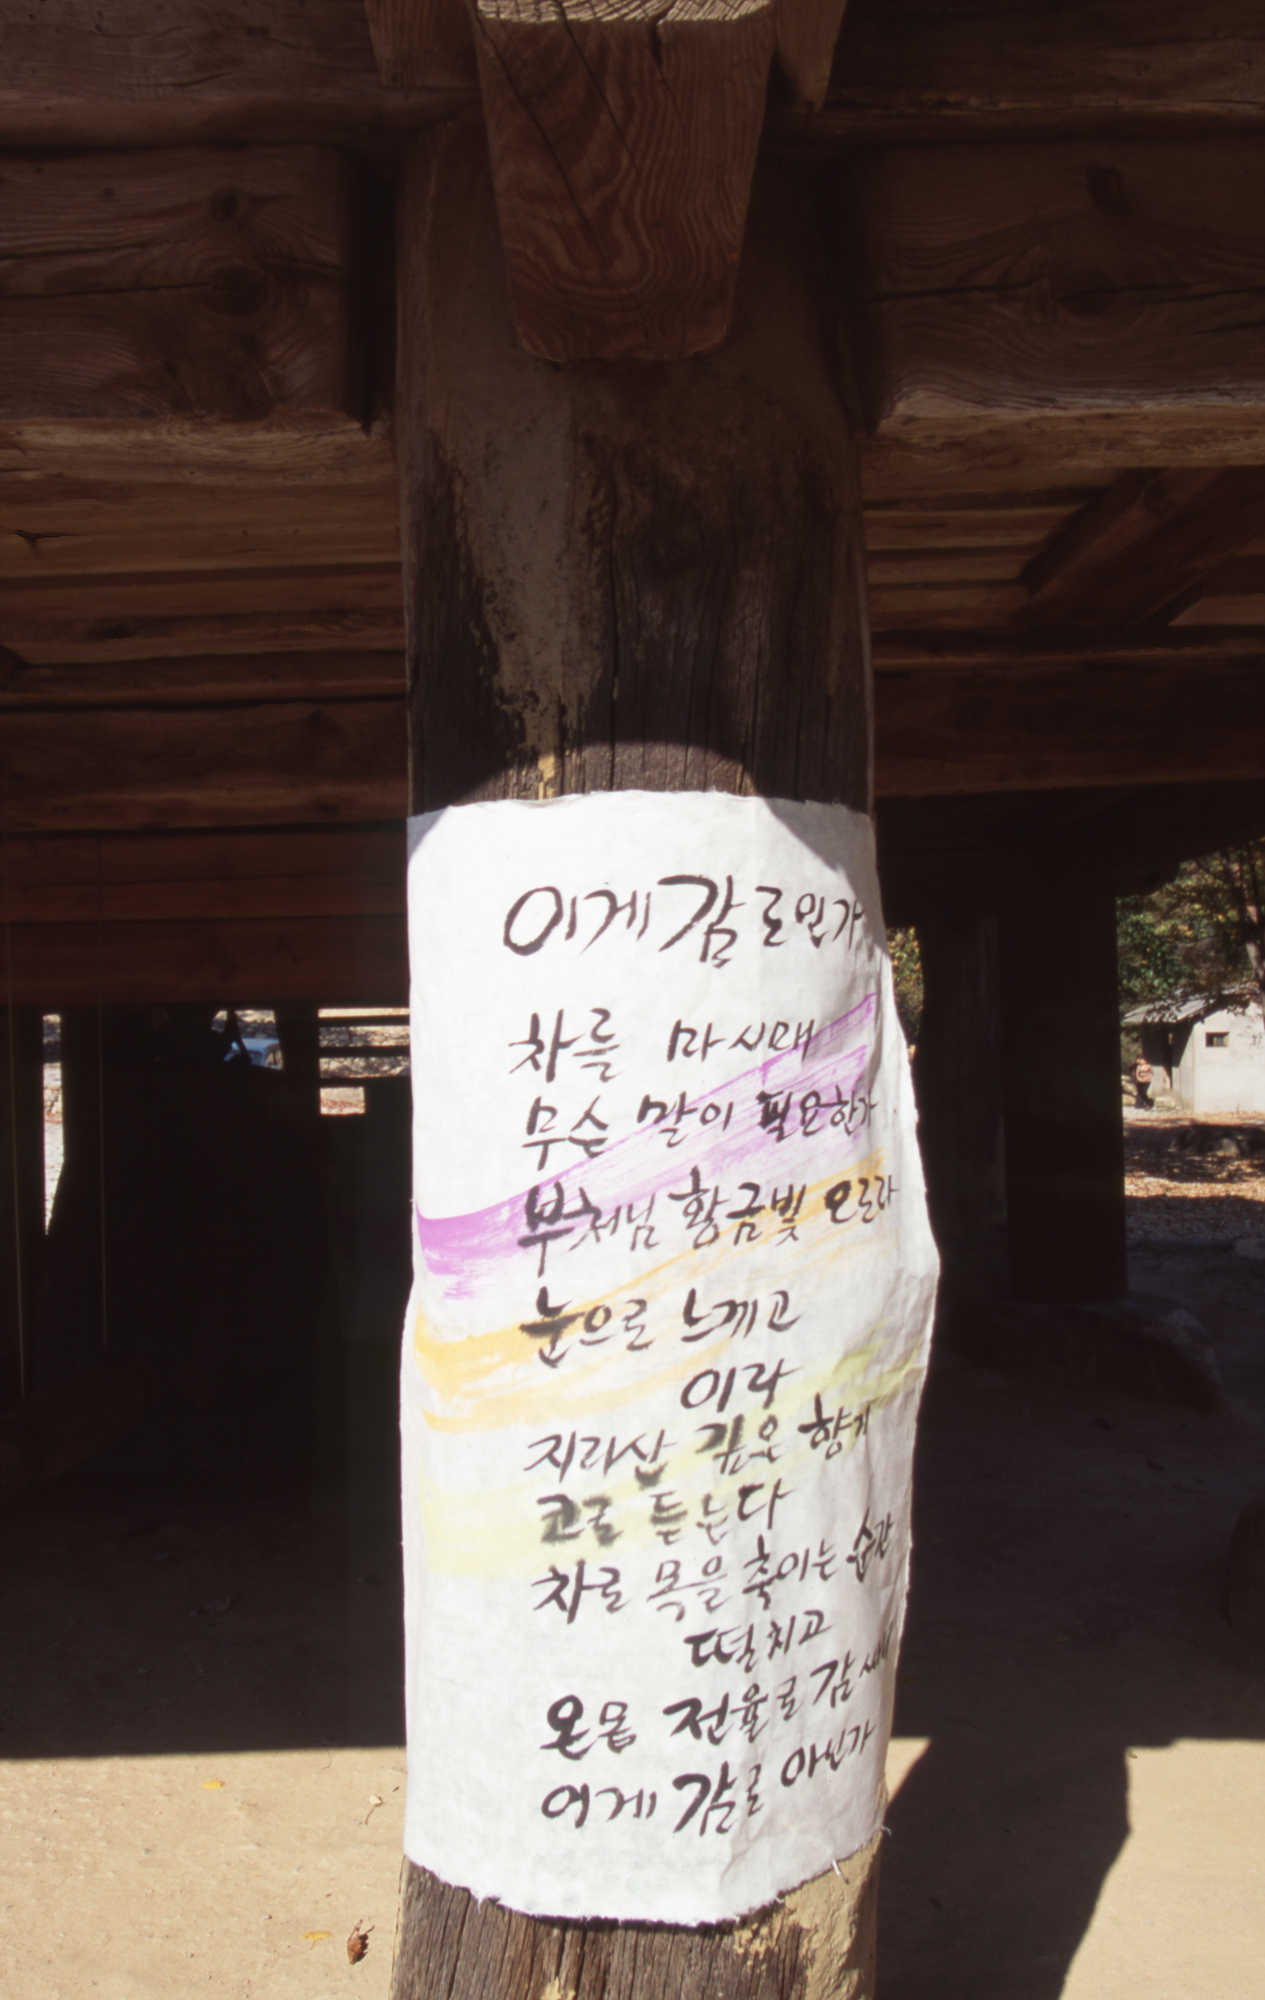 이게 감로인가
차를 마시매
무슨 말이 필요한가
부처님 황금빛 오로라
눈으로 느끼고
이라
지리산 깊은 향기
코로 듣는다
차로 목을 축이는 순간
떨치고
온몸 전율로 감싸
이게 감로 아닌가